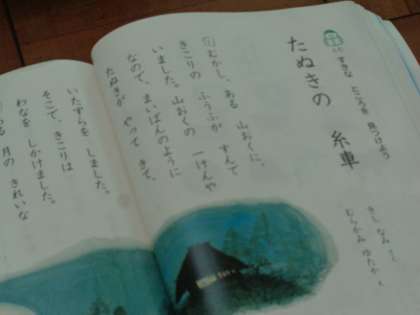 すきな ところを 見つけよう
たぬきの 糸車
きし なみ
むらかみ ゆたか え
むかし、ある 山おくに、
きこりの ふうふが すんで
いました。山おくの 一けんや
なので、まいばんのように
たぬきが やって きて、
いたずらを しました。
そこで、きこりは
わなを しかけました。
月の きれいな